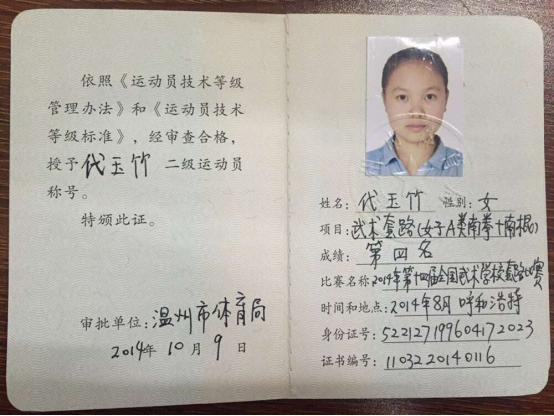 依照《运动员技术等级
管理办法》和《运动员技术
等级标准》，经审查合格，
授予代玉竹 二级运动员
称号。
特颁此证。
审批单位：温州市体育局
2014年 10 月 9 日
姓名：代玉竹 性别：女
项目：武术套路(女子A类南拳+南棍)
成绩：第四名
比赛名称：2014年第十四届全国武术学校套路比赛
时间和地点：2014年8月 呼和浩特
身份证号：522127199604172023
证书编号：1103220140116